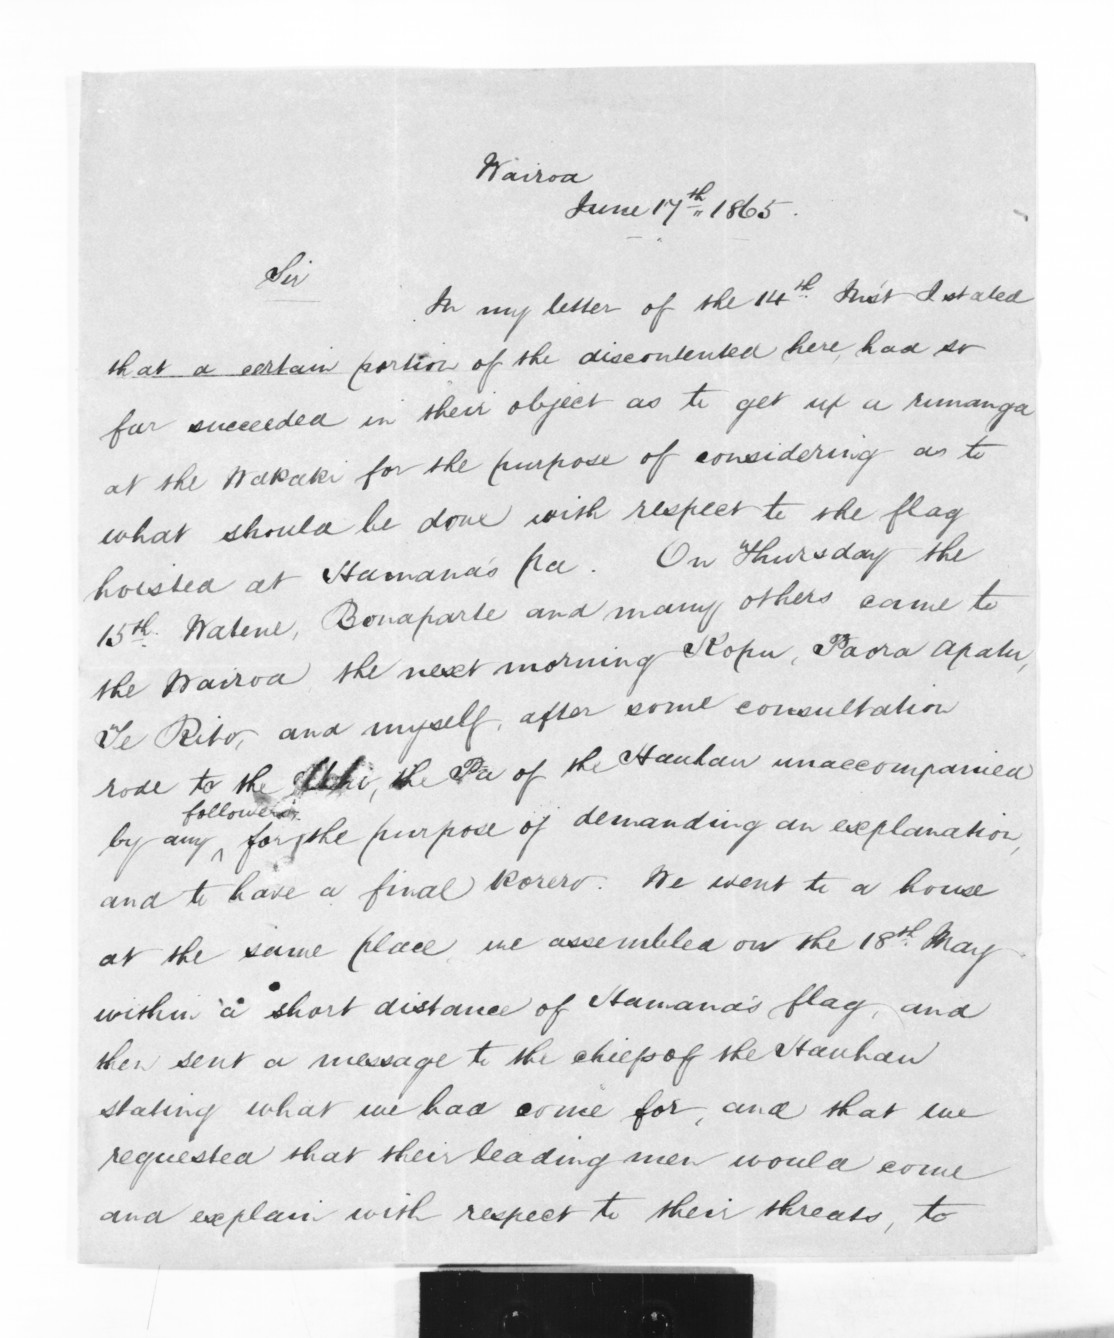 Wairoa
June 17th 1865.
Sir
In my letter of the 14th Inst I stated
that a certain portion of the discontented here, had so
far succeeded in their object as to get up a runanga
at the Wakaki for the purpose of considering as to
what should be done with respect to the flag
hoisted at Hamana's pa. On Thursday the
15th. Watene, Bonaparte and many others came to
the Wairoa, the next morning Kopu, Paora Apatu,
Te Rito, and myself, after some consultation
rode to the Uhi, the Pa of the Hauhau unaccompanied
by any followers for the purpose of demanding an explanation,
and to have a final korero. We went to a house
at the same place we assembled on the 18th. May
within a short distance of Hamana's flag, and
then sent a message to the chiefs of the Hauhau
stating what we had come for, and that we
requested that their leading men would come
and explain with respect to their threats, to